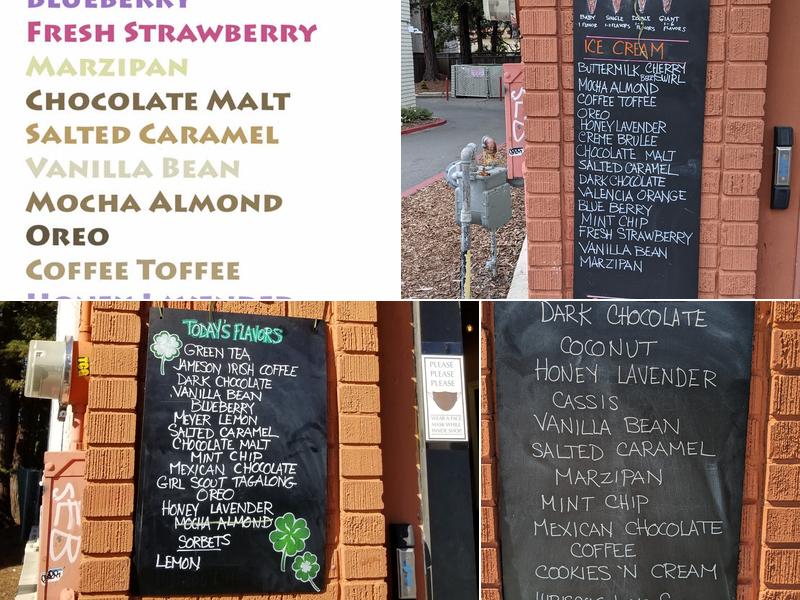 BLUEBERRY
FRESH STRAWBERRY
MARZIPAN
CHOCOLATE MALT
SALTED CARAMEL
VANILLA BEAN
MOCHA ALMOND
OREO
COFFEE TOFFEE
HONEY LAVENDER
BABY SINGLE DOUBLE GIANT
1 FLAVOR
FLAVORS
ICE CREAM
BUTTERMILK CHERRY
SWIRL
MOCHA ALMOND
COFFEE TOFFEE
OREO
HONEY LAVENDER
CREME BRULEE
CHOCOLATE MALT
SALTED CARAMEL
DARK CHOCOLATE
VALENCIA ORANGE
BLUE BERRY
MINT CHIP
FRESH STRAWBERRY
VANILLA BEAN
MARZIPAN
TODAY'S FLAVORS
GREEN TEA
JAMESON IRISH COFFEE
DARK CHOCOLATE
VANILLA BEAN
BLUEBERRY
MEYER LEMON
SALTED CARAMEL
CHOCOLATE MALT
MINT CHIP
MEXICAN CHOCOLATE
GIRL SCOUT TAGALONG
OREO
HONEY LAVENDER
MOCHA ALMOND
SORBETS
LEMON
PLEASE
PLEASE
PLEASE
WEAR A FACE
MASK WHILE
INSIDE SHOP
SEB
DARK CHOCOLATE
COCONUT
HONEY LAVENDER
CASSIS
VANILLA BEAN
SALTED CARAMEL
MARZIPAN
MINT CHIP
MEXICAN CHOCOLATE
COFFEE
COOKIES 'N CREAM